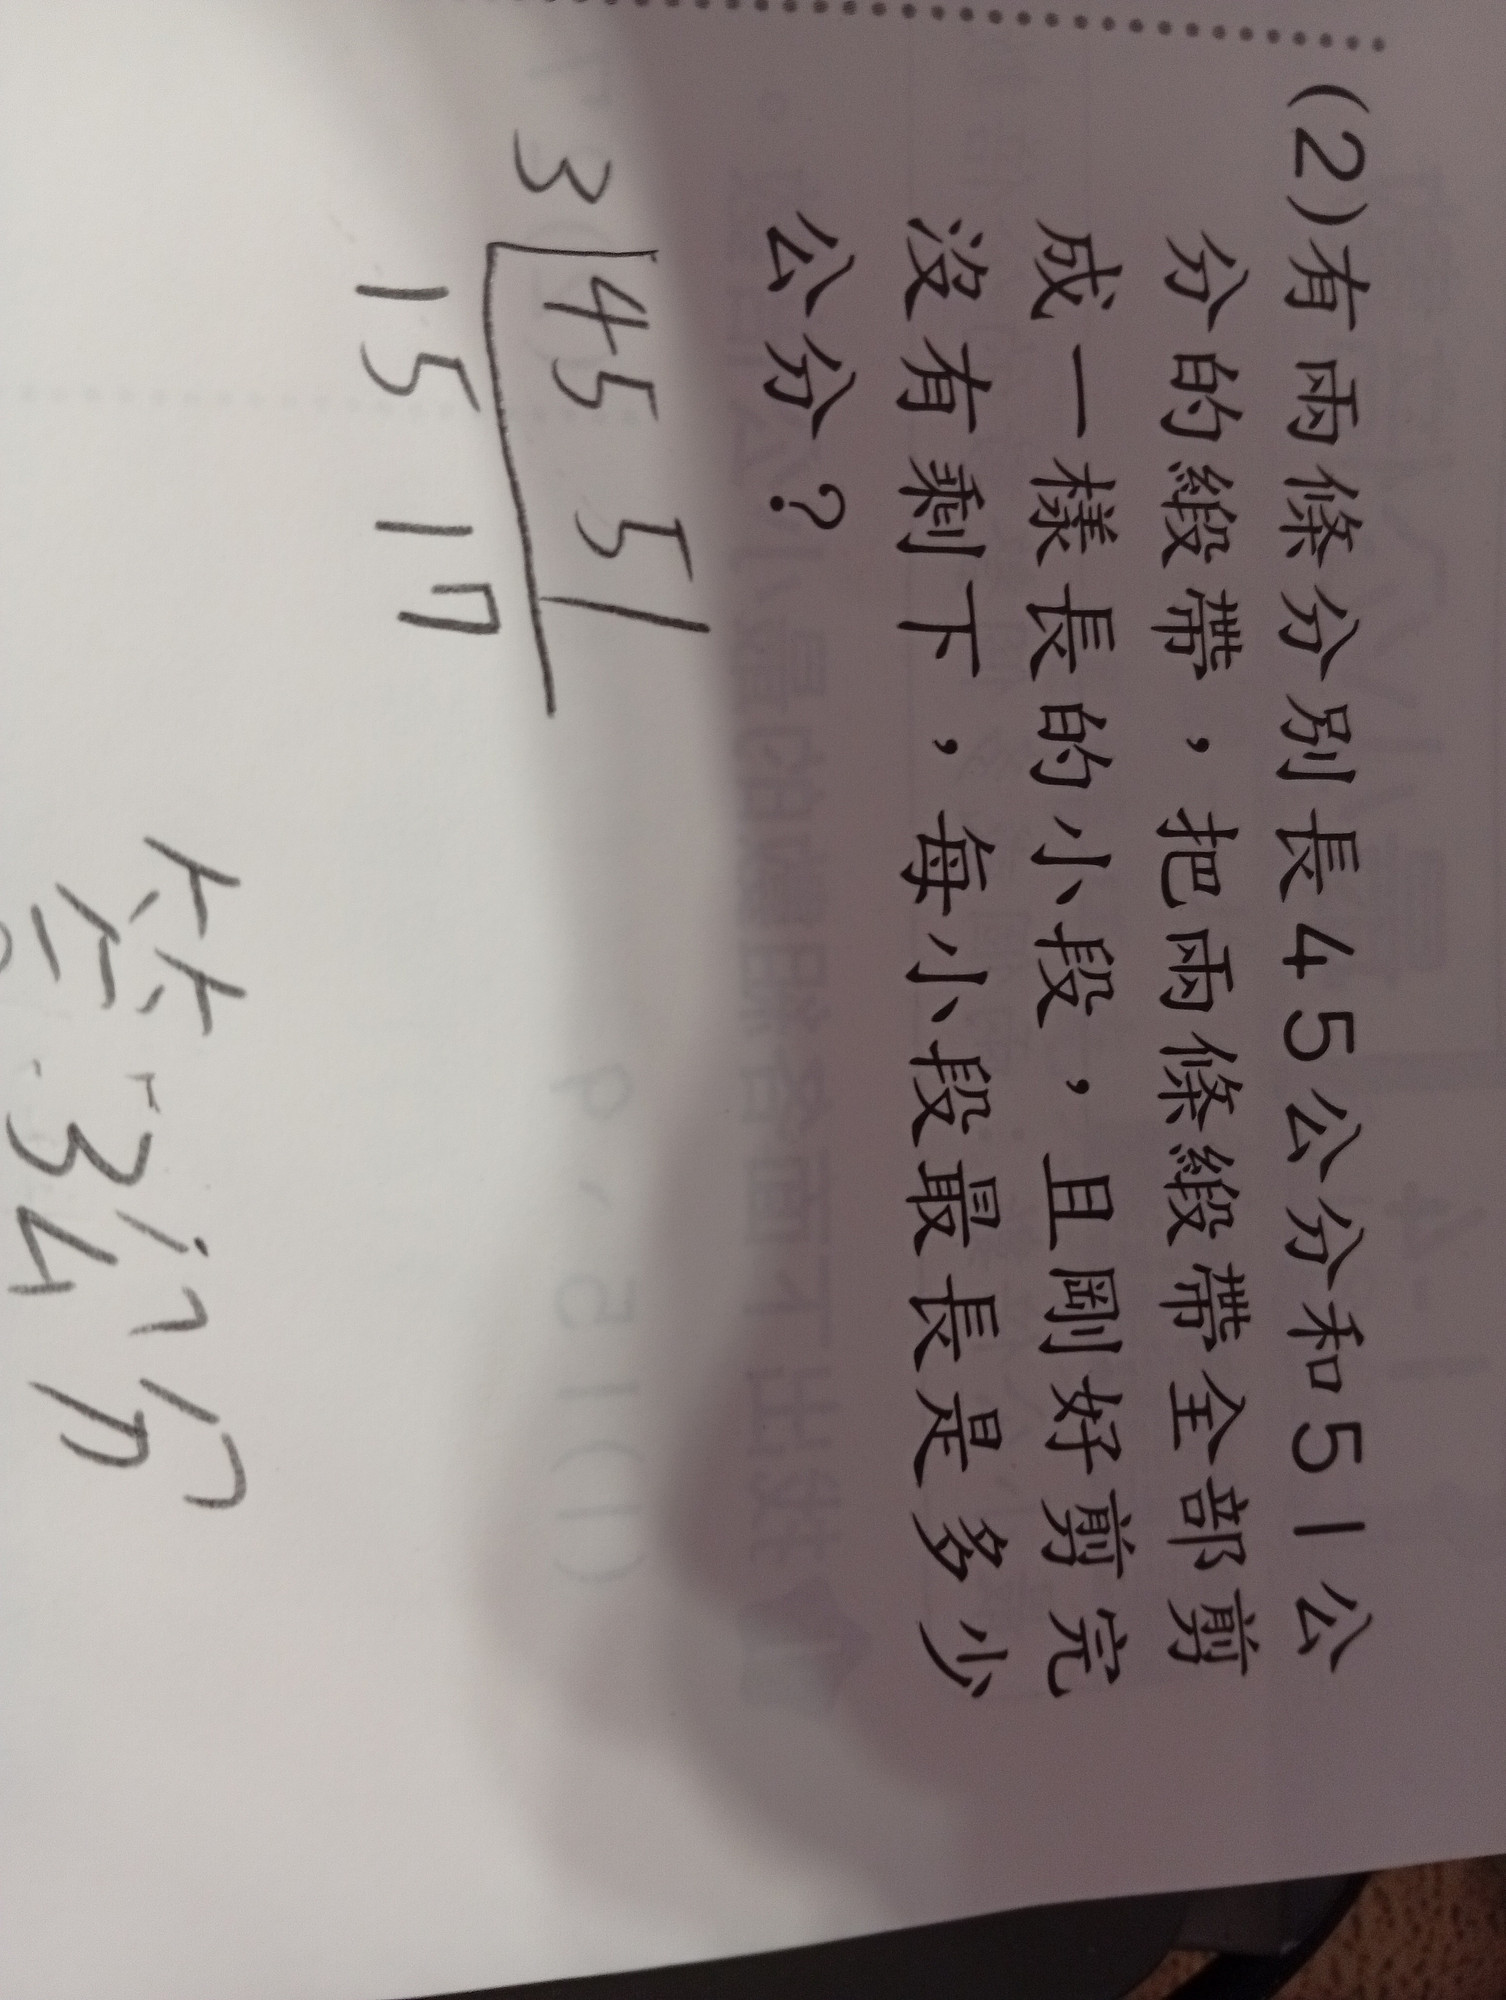 (2)有兩條分別長45公分和51公
分的緞帶，把兩條緞帶全部剪
成一樣長的小段，且剛好剪完
沒有剩下，每小段最長是多少
公分？
3 45 51
15 17
答:3公分